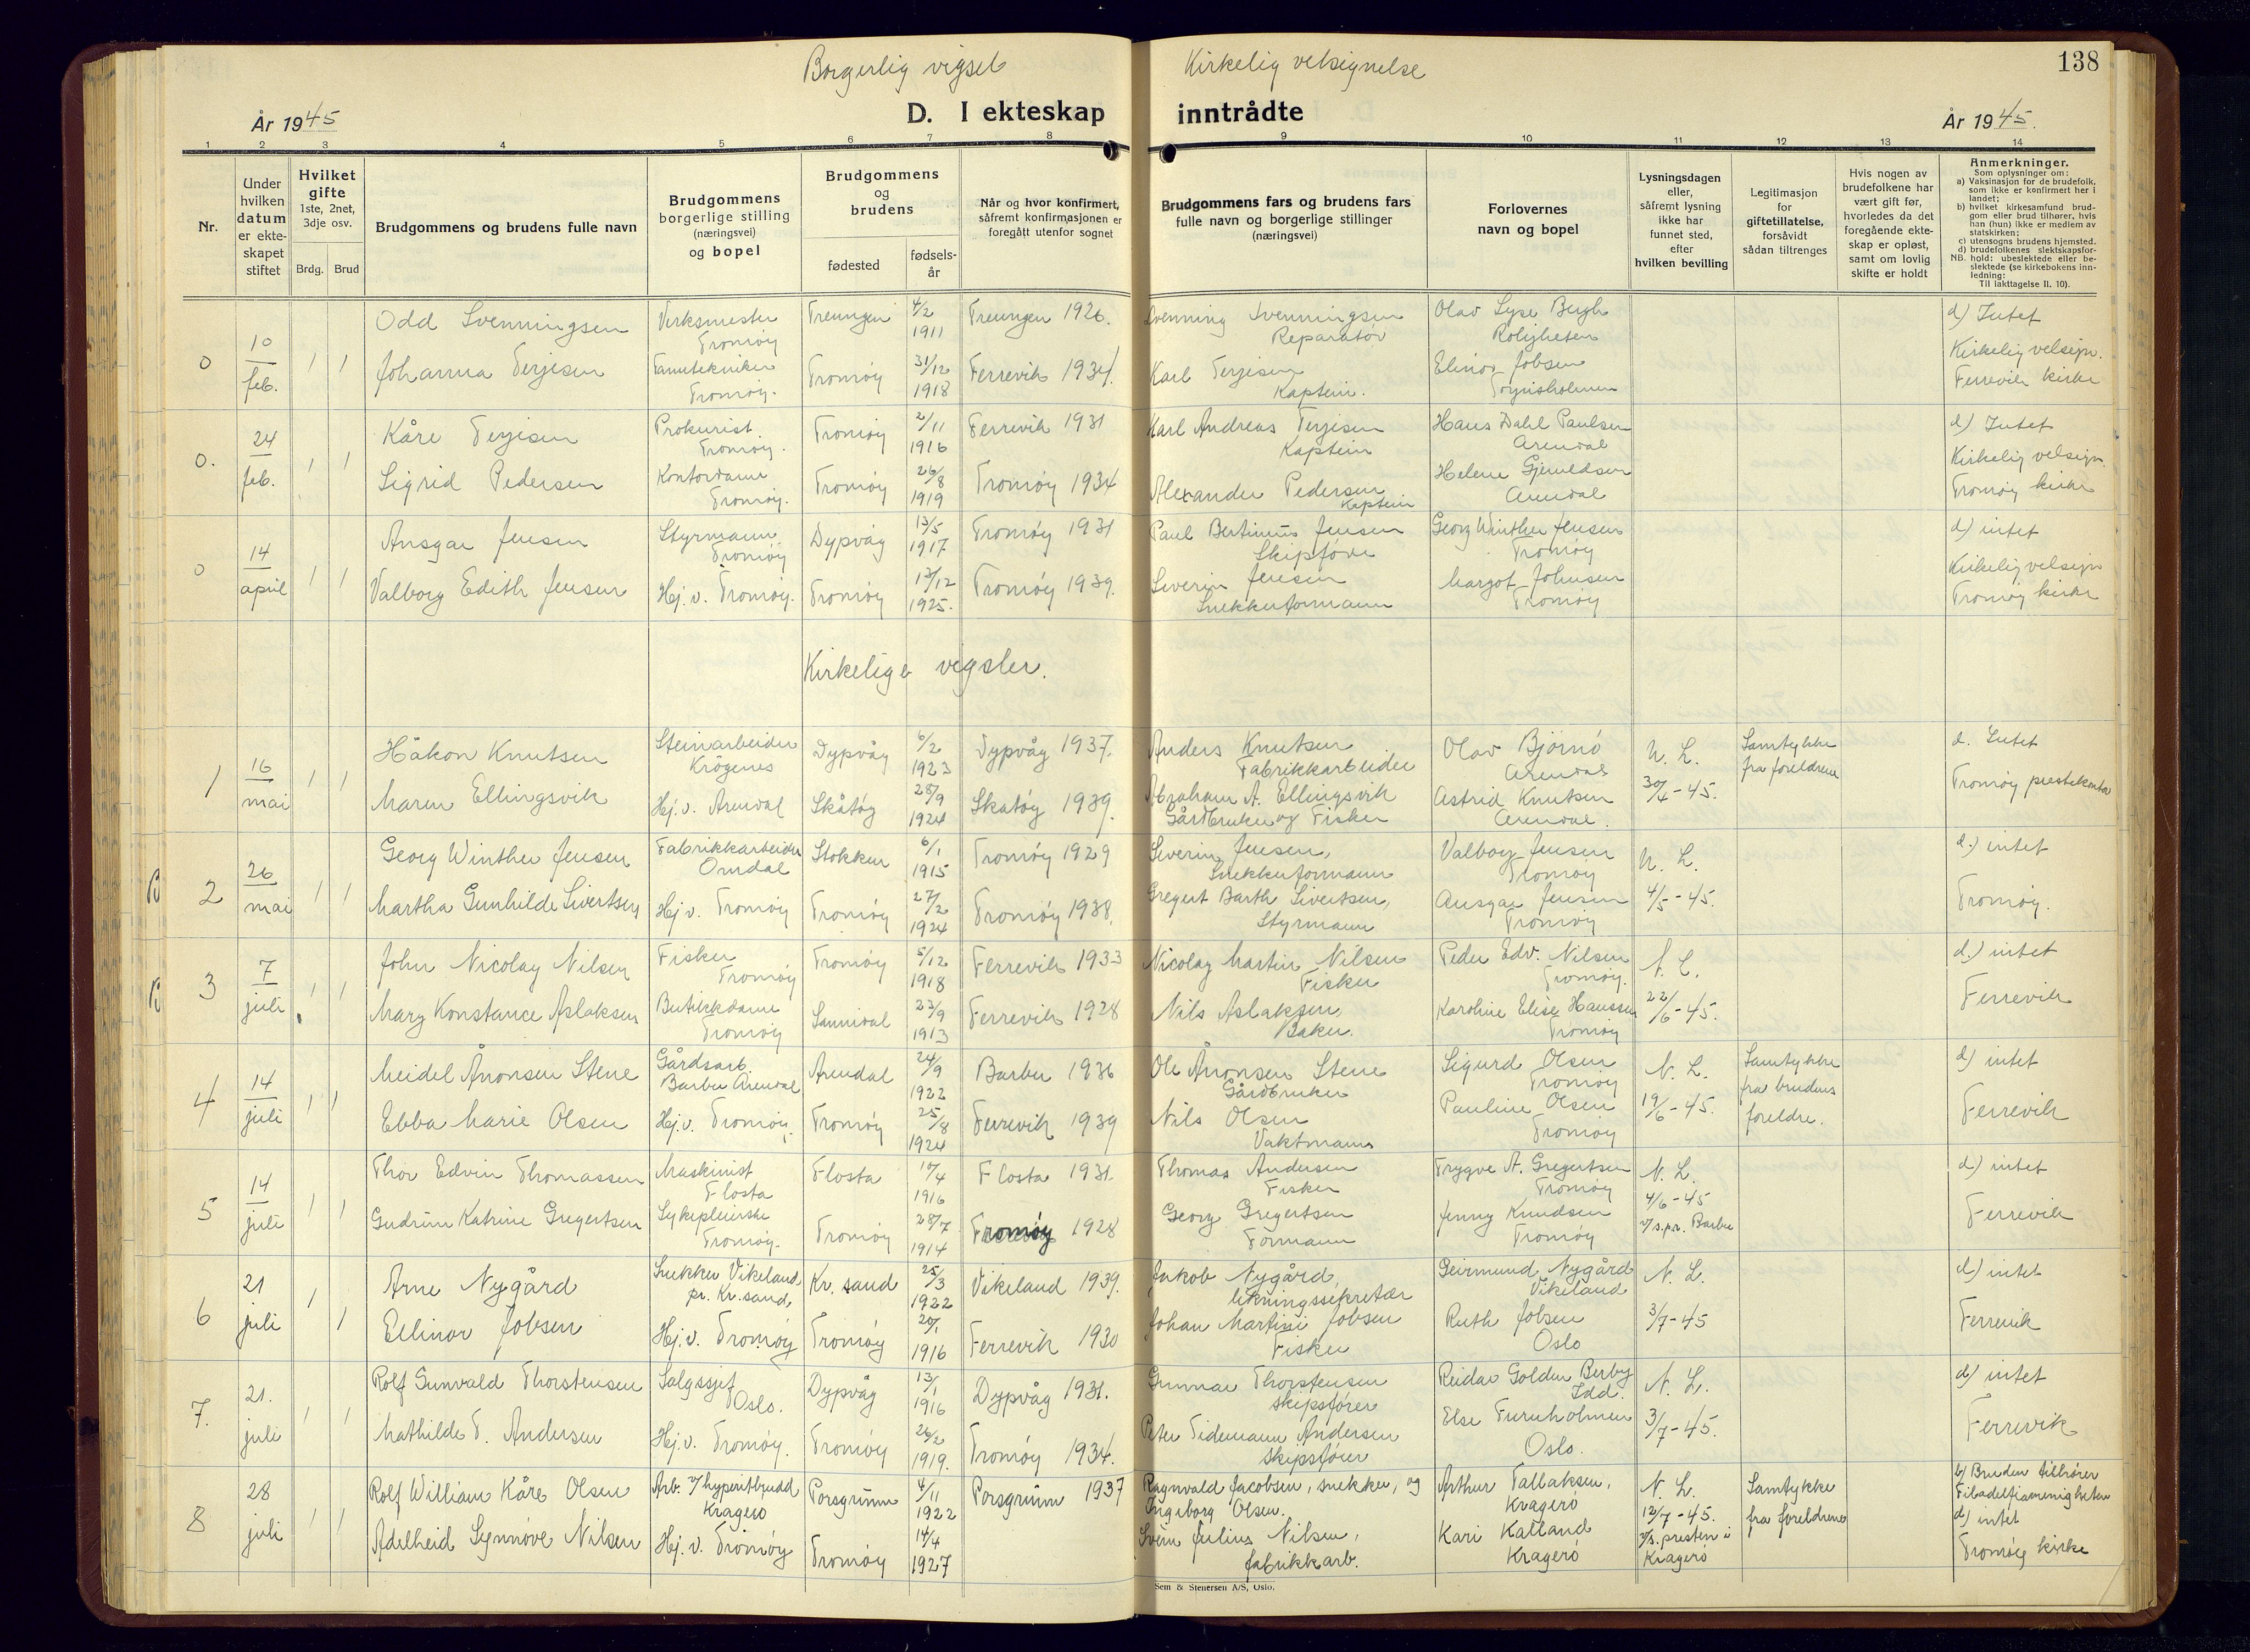 Borgerlig vigsel
Kirkelig velsignelse
138
År 1945
D. I ekteskap inntrådte
År 1945.
1 2 3 4 5 6 7 8 9 10 11 12 13 14
Nr.
Under hvilken datum er ekteskapet stiftet
Hvilket gifte
1ste, 2net, 3dje osv.
Brdg. Brud
Brudgommens og brudens fulle navn
Brudgommens borgerlige stilling (næringsvei) og bopel
Brudgommens og brudens
fødested
fødselsår
Når og hvor konfirmert, såfremt konfirmasjonen er foregått utenfor sognet
Brudgommens fars og brudens fars fulle navn og borgerlige stillinger (næringsvei)
Forlovernes navn og bopel
Lysningsdagen eller, såfremt lysning ikke har funnet sted, efter hvilken bevilling
Legitimasjon for giftetillatelse, forsåvidt sådan tiltrenges
Hvis nogen av brudefolkene har vært gift før, hvorledes da det foregående ekteskap er opløst, samt om lovlig skifte er holdt
Anmerkninger.
Som oplysninger om:
a) Vaksinasjon for de brudefolk, som ikke er konfirmert her i landet;
b) hvilket kirkesamfund brudgom eller brud tilhører, hvis han (hun) ikke er medlem av statskirken;
c) utensogns brudens hjemsted.
d) brudefolkenes slektskapsforhold: ubeslektede eller beslektede (se kirkebokens innledning:
NB.
Til iakttagelse II. 10).
0 10 feb. 1 1
Odd Svenningsen Verksmester Tromøy Treungen 4/2 1911 Treungen 1926. Svenning Svenningsen Reparatør Olav Lyse Bergh Roligheten d) Intet
Johanna Terjesen Tanntekniker Tromøy. Tromøy 31/12 1918 Færevik 1934. Karl Terjesen Kaptein. Elinor Jobsen Kirkelig velsign. Færevik kirke
0. 24 feb. 1 1
Kåre Terjesen Prokurist Tromøy. Tromøy 2/11 1916 Færevik 1931 Karl Andreas Terjesen Kaptein Hans Dahl Paulsen Arendal d) Intet
Sigrid Pedersen Kontordame Tromøy. Tromøy 26/8 1919 Tromøy 1934 Alexander Pedersen Kaptein Helene Gjeruldsen Arendal Kirkelig velsign. Tromøy kirke
0 14 april 1 1
Ansgar Jensen Styrmann Tromøy Dypvåg 13/5 1917 Tromøy 1931 Paul Bertinius Jensen Skipsfører Georg Winther Jensen Tromøy d) intet
Valborg Edith Jensen Hj. v. Tromøy. Tromøy 13/12 1925. Tromøy 1939. Severin Jensen Snekkerformann Margot Johnsen Tromøy Kirkelig velsign Tromøy kirke
Kirkelige vigsler.
1 16 mai 1 1
Håkon Knutsen Steinarbeider Krøgenes Dypvåg 6/2 1923 Dypvåg 1937. Anders Knutsen Fabrikkarbeider Olav Bjørnø Arendal N. L. Samtykke fra foreldrene d. Intet
Maren Ellingsvik Hj. v. Arendal Skåtøy 28/9 1924 Skåtøy 1939. Abraham A. Ellingsvik Gårdbruker og Fisker Astrid Knutsen Arendal. 30/4-45. Tromøy prestekontor
B 2 26 mai 1 1
Georg Winther Jensen Fabrikkarbeider Omdal Stokken 6/1 1915 Tromøy 1929 Severin Jensen, Snekkerformann Valborg Jensen Tromøy N. L. d.) intet
Martha Gunhilde Sivertsen Hj. v. Tromøy Tromøy 27/2 1924 Tromøy 1938. Gregert Barth Sivertsen, Styrmann Ansgar Jensen Tromøy 4/5-45. Tromøy.
B 3 7 juli 1 1
John Nicolay Nilsen Fisker Tromøy Tromøy 5/12 1918 Færevik 1933 Nicolay Martin Nilsen Fisker Peder Edv. Nilsen Tromøy. N. L. d.) intet
Mary Konstance Aslaksen Butikkdame Tromøy Sannidal 23/9 1913 Færevik 1928 Nils Aslaksen, Baker. Karoline Elise Hanssen Tromøy 22/6-45. Færevik
4 14 juli 1 1
Meidel Ånonsen Stene Gårdsarb. Barbu Arendal Arendal 24/9 1922 Barbu 1936 Ole Ånonsen Stene Gårdbruker Sigurd Olsen Tromøy N. L. Samtykke fra brudens foreldre. d) intet
Ebba Marie Olsen Hj. v. Tromøy. Tromøy 25/8 1924 Færevik 1939 Nils Olsen Vaktmann Pauline Olsen Tromøy 19/6-45. Færevik
5 14 juli 1 1
Thor Edvin Thomassen Maskinist Flosta Flosta 10/4 1916 Flosta 1931 Thomas Andersen Fisker Trygve A. Gregertsen Tromøy N. L. d) intet
Gudrun Katrine Gregertsen Sykepleierske Tromøy. Tromøy 28/7 1914 Tromøy 1928 Georg Gregertsen Formann Jenny Knudsen Tromøy 4/6-45 v/s.pr. Barbu Færevik
6 21 juli 1 1
Arne Nygård Snekker Vikeland pr. Kr.sand, Kr.sand 25/3 1922 Vikeland 1939. Jakob Nygård, likningssekretær Geirmund Nygård Vikeland N. L. d) intet
Ellinor Jobsen Hj. v. Tromøy Tromøy 20/1 1916 Færevik 1930 Johan Martini Jobsen Fisker Ruth Jobsen Oslo 3/7-45 Færevik
7. 21. juli 1 1
Rolf Gunvald Thorstensen Salgssjef Oslo. Dypvåg 13/1 1916 Dypvåg 1931. Gunnar Thorstensen skipsfører Reidar Golden Berby Idd. N. L. d) intet
Mathilde T. Andersen Hj. v. Tromøy. Tromøy 26/2 1919. Tromøy 1934. Peter Tidemann Andersen skipsfører Else Furuholmen Oslo. 3/7-45. Færevik
8 28 juli 1 1
Rolf William Kåre Olsen Arb. v/hyperitbrudd Kragerø Porsgrunn 4/11 1922 Porsgrunn 1937 Ragnvald Jacobsen, snekker, og Ingeborg Olsen. Arthur Tallaksen, Kragerø N. L. Samtykke fra foreldrene b) Bruden tilhører Filadelfiamenigheten
Adelheid Synnøve Nilsen Hj. v. Tromøy Tromøy 14/4 1927 Julius Nilsen, fabrikkarb. Kari Kalland Kragerø 12/7-45. v/s. presten i Kragerø d) intet Tromøy kirke
Sem & Stenersen A/S, Oslo.